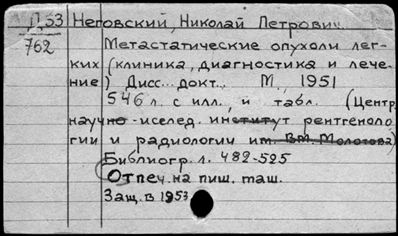 Д53 Неговский, Николай Петрович
762 Метастатические опухоли лег-
ких (клиника, диагностика и лече-
ние) Дисс... докт., М., 1951
546 л. с илл., и табл. (Центр.
научно-исслед. институт рентгеноло-
гии и радиологии им. В.М. Молотова)
Библиогр. л. 482-525
Отпеч. на пиш. маш.
Защ. в 1953